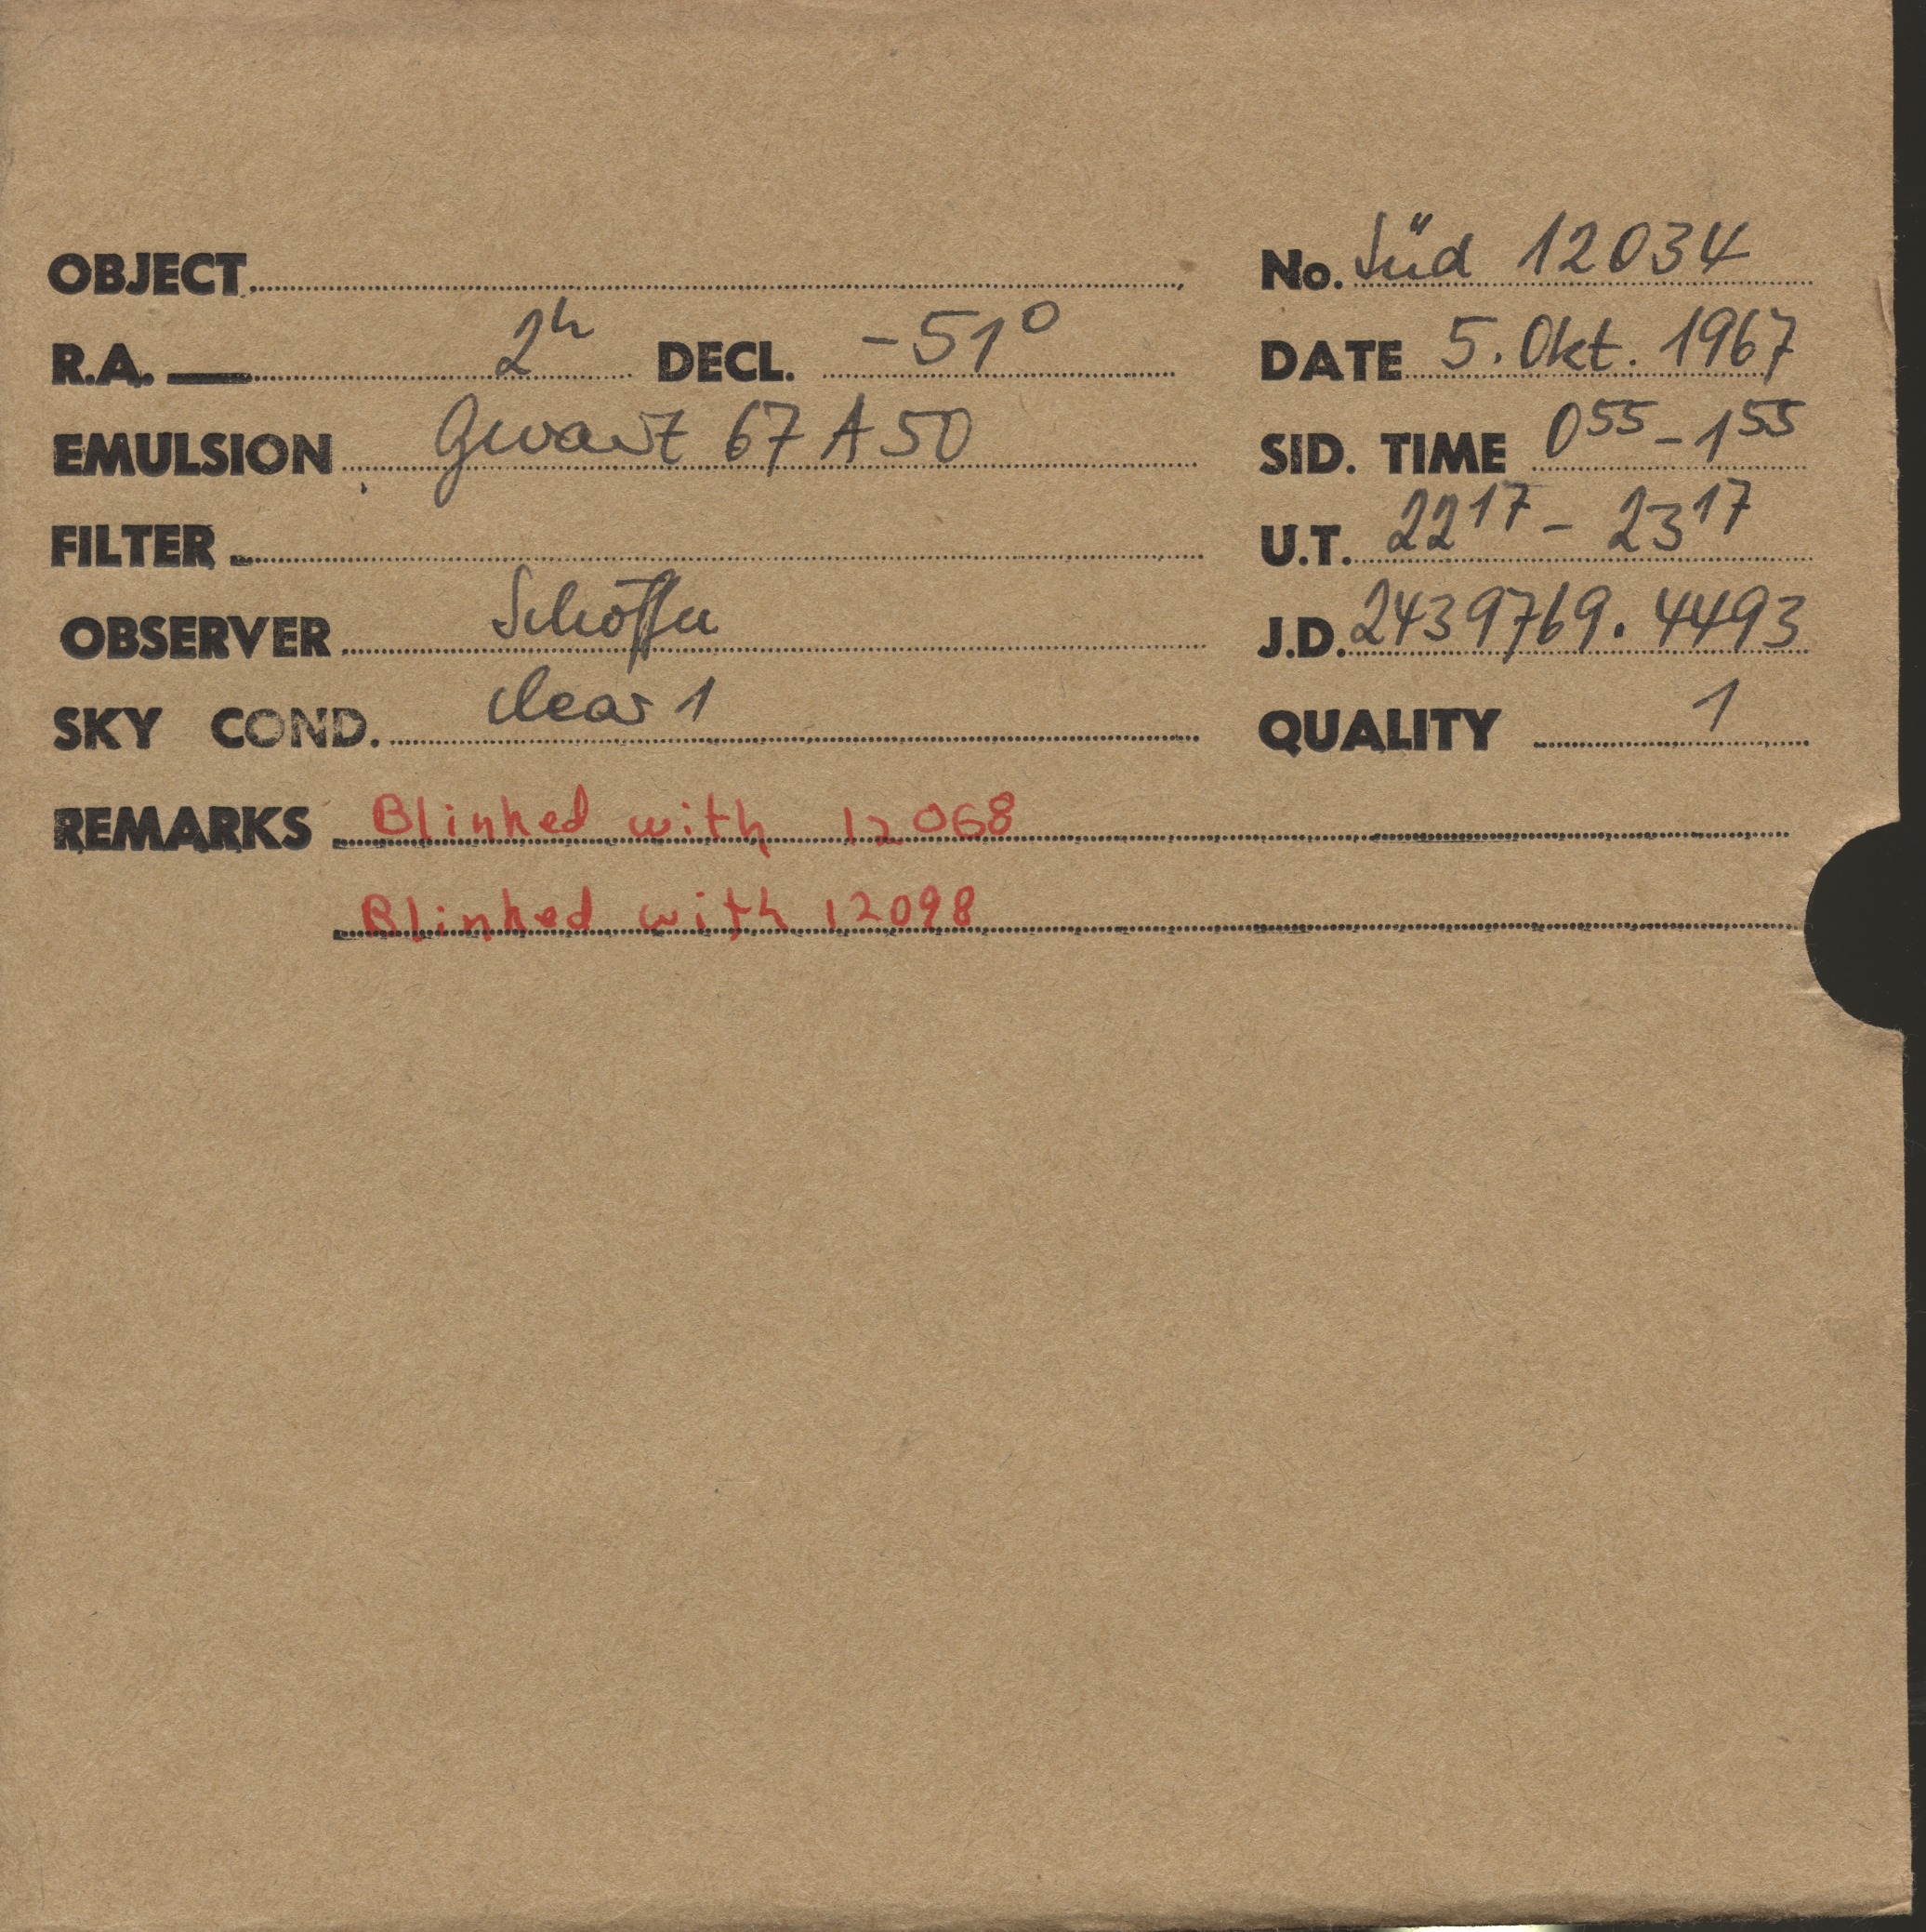 OBJECT No. Süd 12034
R.A. 2h DECL. -51°
DATE 5. Okt. 1967
EMULSION Gevaert 67 A 50
SID. TIME 0 55 - 1 55
FILTER
U.T. 22 17 - 23 17
OBSERVER
J.D. 2439769.4493
SKY COND. clear 1
QUALITY 1
REMARKS Blinked with 12068
Blinked with 12098